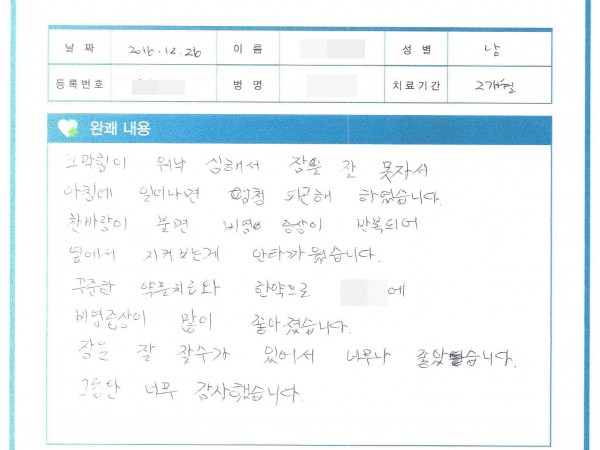 날 짜 2016.12.26 이 름 성 별 남
등록번호 병 명 치료기간 2개월
완쾌 내용
코막힘이 워낙 심해서 잠을 잘 못자서
아침에 일어나면 엄청 피곤해 하였습니다.
찬바람이 불면 비염 증상이 반복되어
옆에서 지켜보는게 안타까웠습니다.
꾸준한 약문치료와 한약으로 에
비염증상이 많이 좋아졌습니다.
잠을 잘 잘수가 있어서 너무나 좋았습니다.
그동안 너무 감사했습니다.